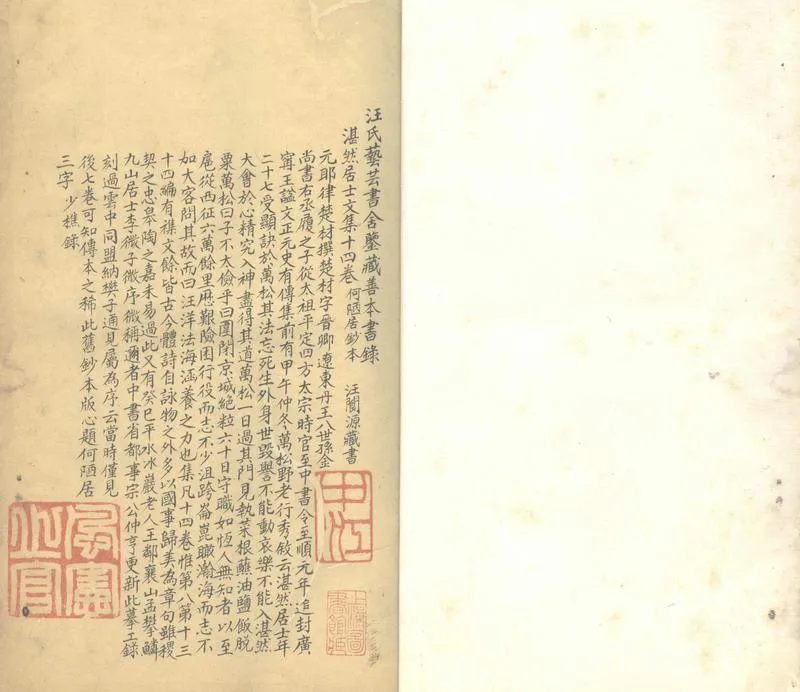 汪氏藝芸書舍鑒藏善本書錄
湛然居士文集十四卷 何陋居鈔本 汪閬源藏書
元耶律楚材撰楚材字晉卿遼東丹王八世孫金
尚書右丞履之子從太祖平定四方太宗時官至中書令至順元年追封廣
甯王謚文正元史有傳集前有甲午仲冬萬松野老行秀敘云湛然居士年
二十七受顯訣於萬松其法忘死生外身世毀譽不能動哀樂不能入湛然
大會於心精究入神盡得其道萬松一日過其門見執菜根蘸油鹽飯脫
粟萬松曰子不太儉乎曰圍閉京城絕粒六十日守職如恆人無知者以至
扈從西征六萬餘里歷艱險困行役而志不少沮跨崙崑瞰瀚海而志不
加大客問其故而曰汪洋法海涵養之力也集凡十四卷惟第八第十三
十四編有襍文餘皆古今體詩自詠物之外多以國事歸美為章句雖稷
契之忠皋陶之嘉未易過此又有癸巳平水冰巖老人王鄰襄山孟攀鱗
九山居士李微子微序微稱邇者中書省都事宗公仲亨更新此摹工錄
刻過雲中同盟納樊子通見屬為序云當時僅見
後七卷可知傳本之稀此舊鈔本版心題何陋居
三字 少樵錄